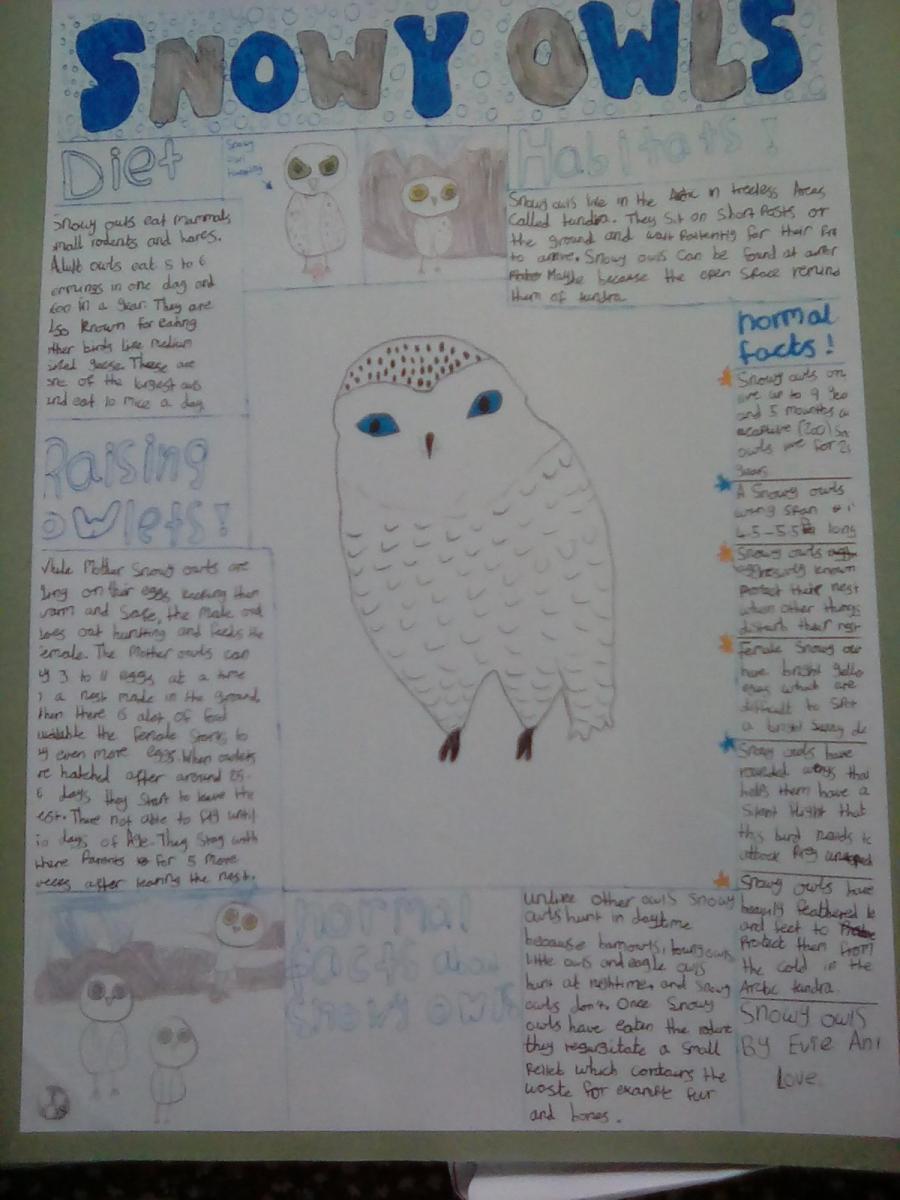 SNOWY OWLS
Diet
Snowy owls eat mammals
small rodents and hares.
Adult owls eat 5 to 6
in one day and
600 in a year. They are
lso known for eating
ther birds like medium
sized geese. These are
one of the largest owls
and eat 10 mice a day.
Snowy
owl
hunting
Habitats!
Snowy owls live in the Arctic in treeless Areas
Called tundra. They Sit on Short Posts or
the ground and wait Patiently for their Prey
to arrive. Snowy owls can be found at
Maybe because the open Space remind
them of tundra.
Raising
owlets!
While Mother Snowy owls are
on their eggs keeping them
warm and Safe, the Male owl
goes out hunting and feeds the
female. The Mother owls can
3 to 11 eggs at a time
a nest made in the ground,
then there is alot of food
the female Starts to
even more eggs. When owlets
re hatched after around 25-
6 days they Start to leave the
est. There not able to fly until
days of Age. They Stay with
there Parents for 5 More
weeks after leaving the nest.
normal
facts!
Snowy owls
live up to 9
and 5 months
(zoo)
owls live for
years
A Snowy owls
wing span
4.5-5.5 long
Snowy owls
known
Protect their nest
when other things
disturb their nest
Female Snowy
have bright
eyes what are
difficult to Spot
a bright Sunny
Snowy owls have
rounded wings that
helps them have a
Silent flight that
this bird needs to
attack Prey
Snowy owls have
heavily feathered
and feet to
Protect them from
the cold in the
Arctic tundra.
Snowy owls
By Evie
Love
normal
facts about
snowy owls
unlike other owls Snowy
owls hunt in daytime
because barnowls,
little owls and eagle owls
hunt at nightime, and Snowy
owls don't. Once Snowy
owls have eaten the
they regurgitate a Small
Pellet which contains the
waste for example fur
and bones.